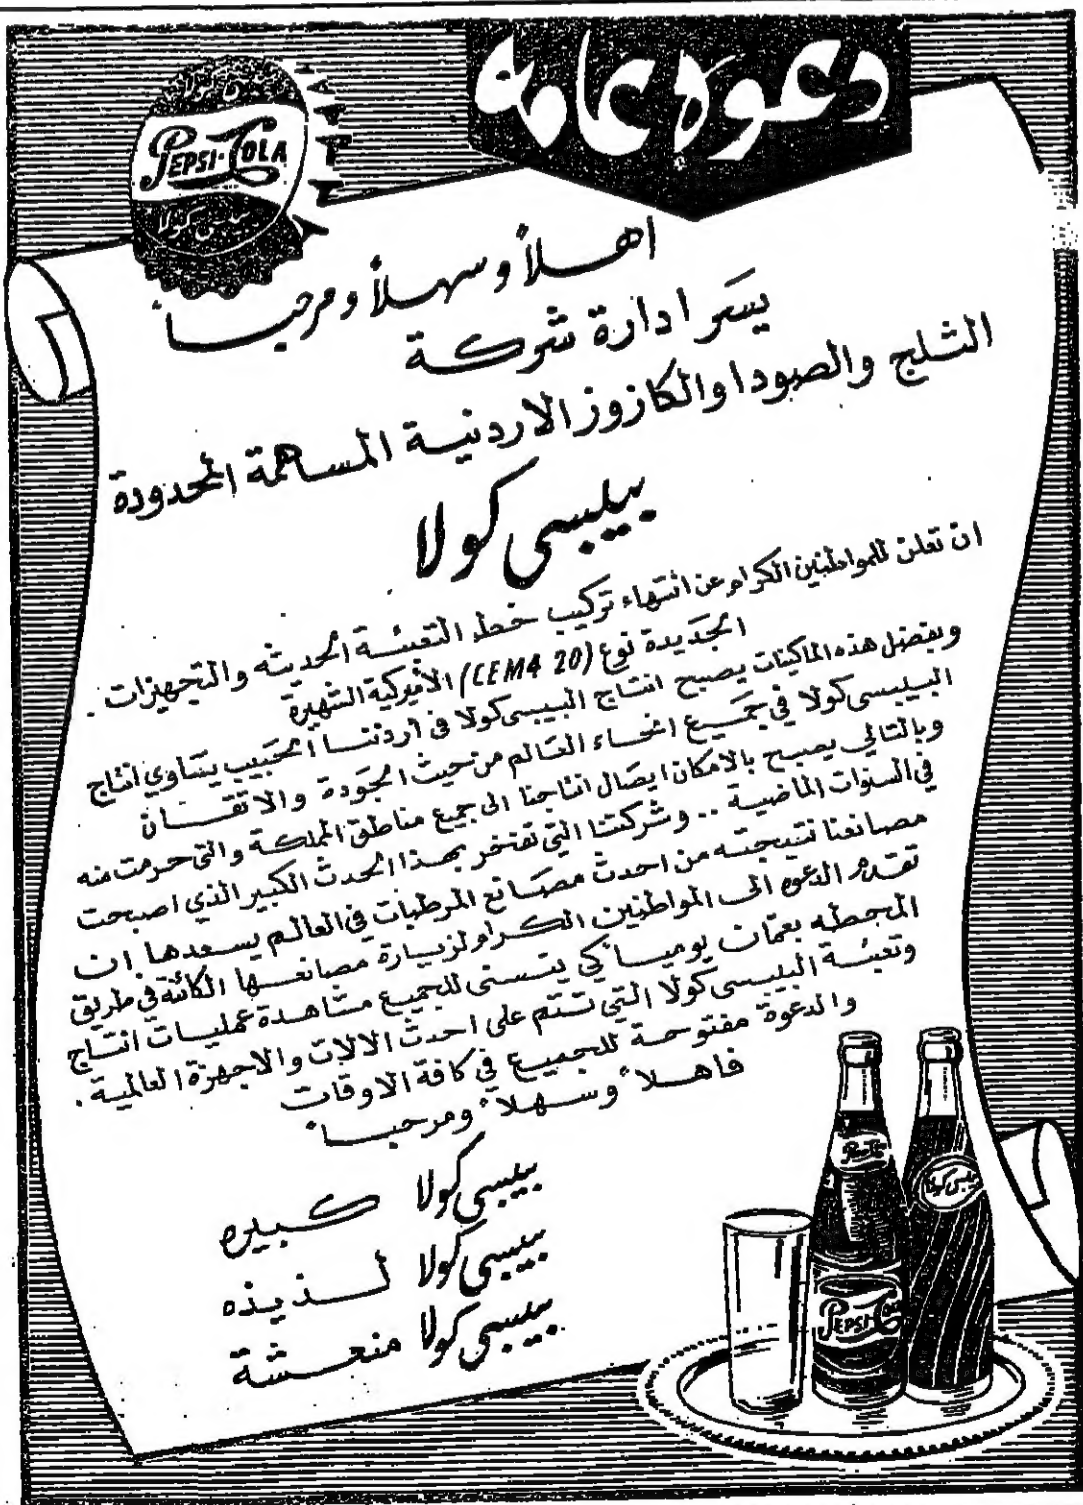 دعوة عامة
بيبسي كولا
PEPSI-COLA
بيبسي كولا
اهلاً وسهلاً ومرحباً
يسر ادارة شركة
الثلج والصودا والكازوز الاردنية المساهمة المحدودة
بيبسي كولا
ان تعلن للمواطنين الكرام عن انتهاء تركيب خط التعبئة الحديثه والتجهيزات
الجديدة نوع (CEM4 20) الأميركية الشهيرة .
وبفضل هذه الماكينات يصبح انتاج البيبسي كولا في أردننا الحبيب يساوي انتاج
البيبسي كولا في جميع انحاء العالم من حيث الجودة والاتقان
وبالتالي يصبح بالامكان ايصال انتاجنا الى جميع مناطق المملكة والتي حرمت منه
في السنوات الماضية .. وشركتنا التي تفتخر بهذا الحدث الكبير الذي اصبحت
مصانعنا نتيجته من احدث مصانع المرطبات في العالم يسعدها ان
تقدم الدعوه الى المواطنين الكرام لزيارة مصانعها الكائنة في طريق
المحطه بعمان يومياً كي يتسنى للجميع مشاهدة عمليات انتاج
وتعبئة البيبسي كولا التي تتم على احدث الالات والاجهزة العالمية .
والدعوة مفتوحة للجميع في كافة الاوقات
فاهلاً وسهلاً ومرحباً
بيبسي كولا كبيره
بيبسي كولا لذيذه
بيبسي كولا منعشة
PEPSI-COLA
بيبسي كولا
PEPSI-COLA